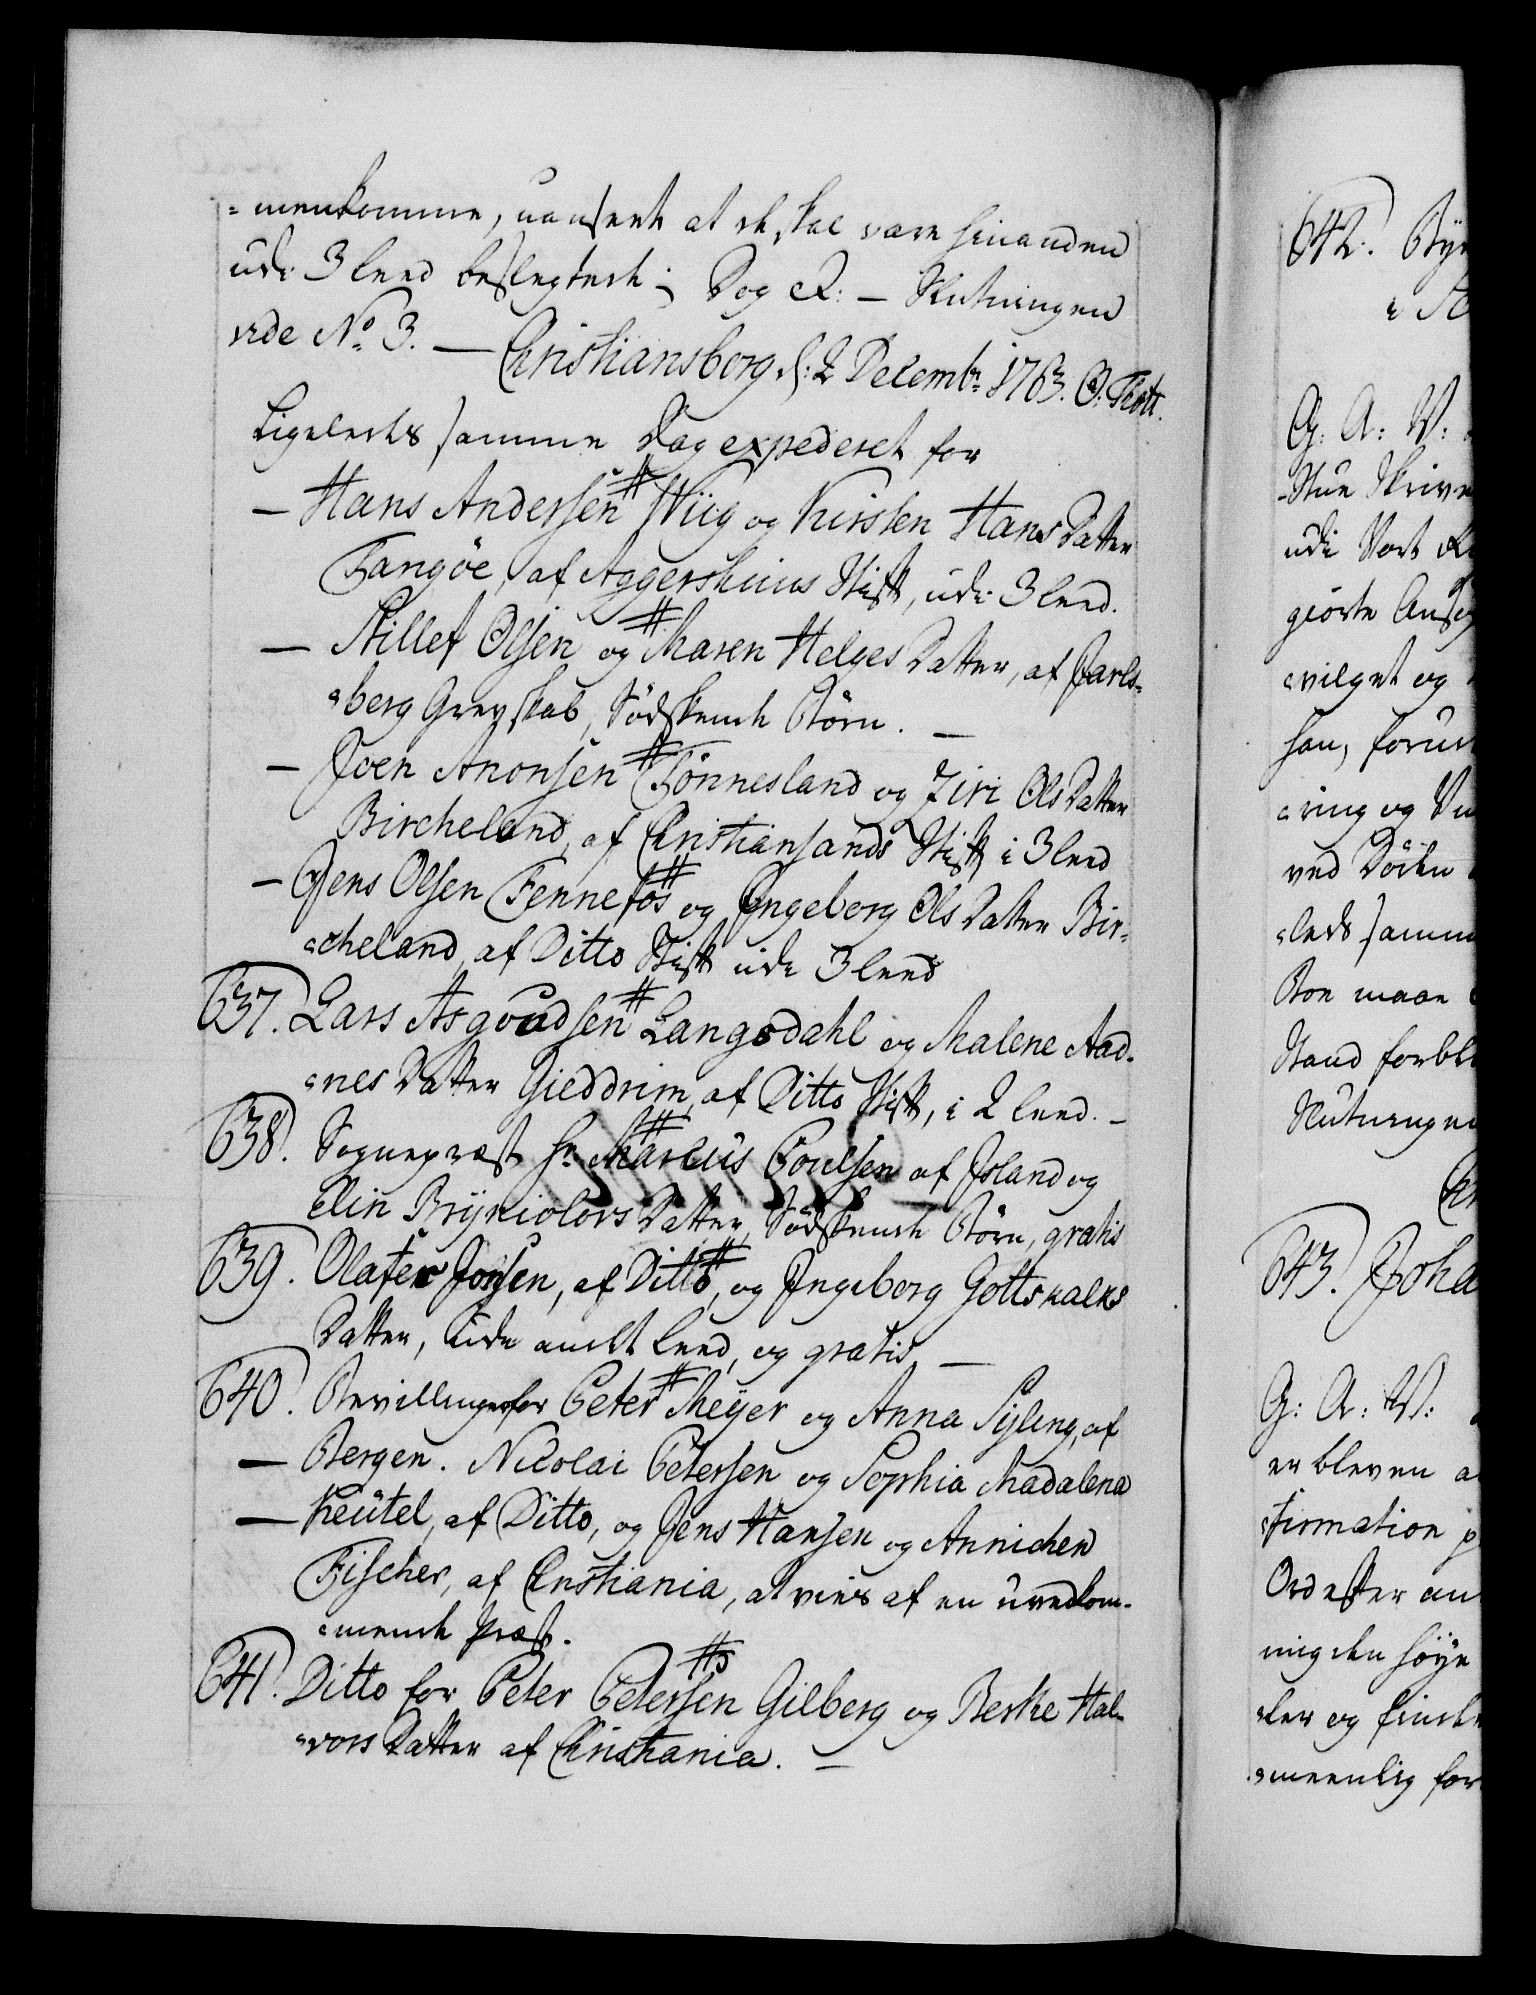 =menkomme, uanseet at de skal være hinanden
udi 3 leed beslegtede; Dog &: — Slutningen
vide No 3. — Christiansborg d: 2 Decembr 1763. O. Thott.
Ligeledes samme Dag expederet for
— Hans Andersen Wiig og Kirsten Hans Datter
Tangöe, af Aggershuus Stift, udi 3 leed.
— Stillef Olsen og Maren Helges Datter, af Jarls=
=berg Grevskab, Sødskende Børn. —
— Joen Anonsen Tönnesland og Ziri Ols Datter
Bircheland, af Christiansands Stift i 3 leed
— Jens Olsen Fennefos og Ingeberg Ols Datter Bir=
=cheland, af Ditto Stift udi 3 leed
637. Lars Asgoudsen Langsdahl og Malene Aad=
=nes Datter Gieddrim, af Ditto Stift, i 2 leed. —
638. Sognepræst Hr Marcus Poulsen af Island og
Elin Bryniolvs Datter, Sødskende Børn, gratis
639. Olafer Jonsen, af Ditto, og Ingeborg Gottskalks
Datter, udi andet leed, og gratis —
640. Bevillinger for Peter Meyer og Anna Syling, af
— Bergen. Nicolai Petersen og Sophia Madalena
— Keütel, af Ditto, og Jens Hansen og Annichen
Fischer, af Christiania, at vies af en uvedkom=
=mende Præst.
641. Ditto for Peter Petersen Gilberg og Berthe Hal=
=vors Datter af Christiania. —
642. Byr
G: A: V:
Skriver
udi Vort
giorte Ansøg
=vilget og
han, forud
=ring og
ved Døden
=leds samme
Boe maae
Stand forbli
Slutningen
643. Joha
G: A: V:
er bleven a
=firmation p
Ord efter an
mig den høye
=ler og finde
=meenlig for